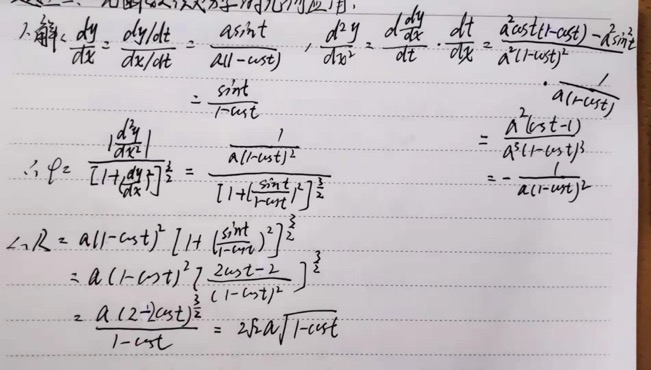 1.解: dy/dx = (dy/dt)/(dx/dt) = asint/a(1-cost) , d²y/dx² = d(dy/dx)/dt · dt/dx = (a²cost(1-cost) - a²sin²t)/a²(1-cost)²
· 1/a(1-cost)
= sint/(1-cost)
= a²(cost-1)/a³(1-cost)³
= - 1/a(1-cost)²
∴ρ = |d²y/dx²|/[1+(dy/dx)²]^(3/2) = (1/a(1-cost)²)/[1+(sint/(1-cost))²]^(3/2)
∴R = a(1-cost)² [1+(sint/(1-cost))²]^(3/2)
= a(1-cost)² [(2cost-2)/(1-cost)²]^(3/2)
= a(2-2cost)^(3/2)/(1-cost) = 2√2a√(1-cost)